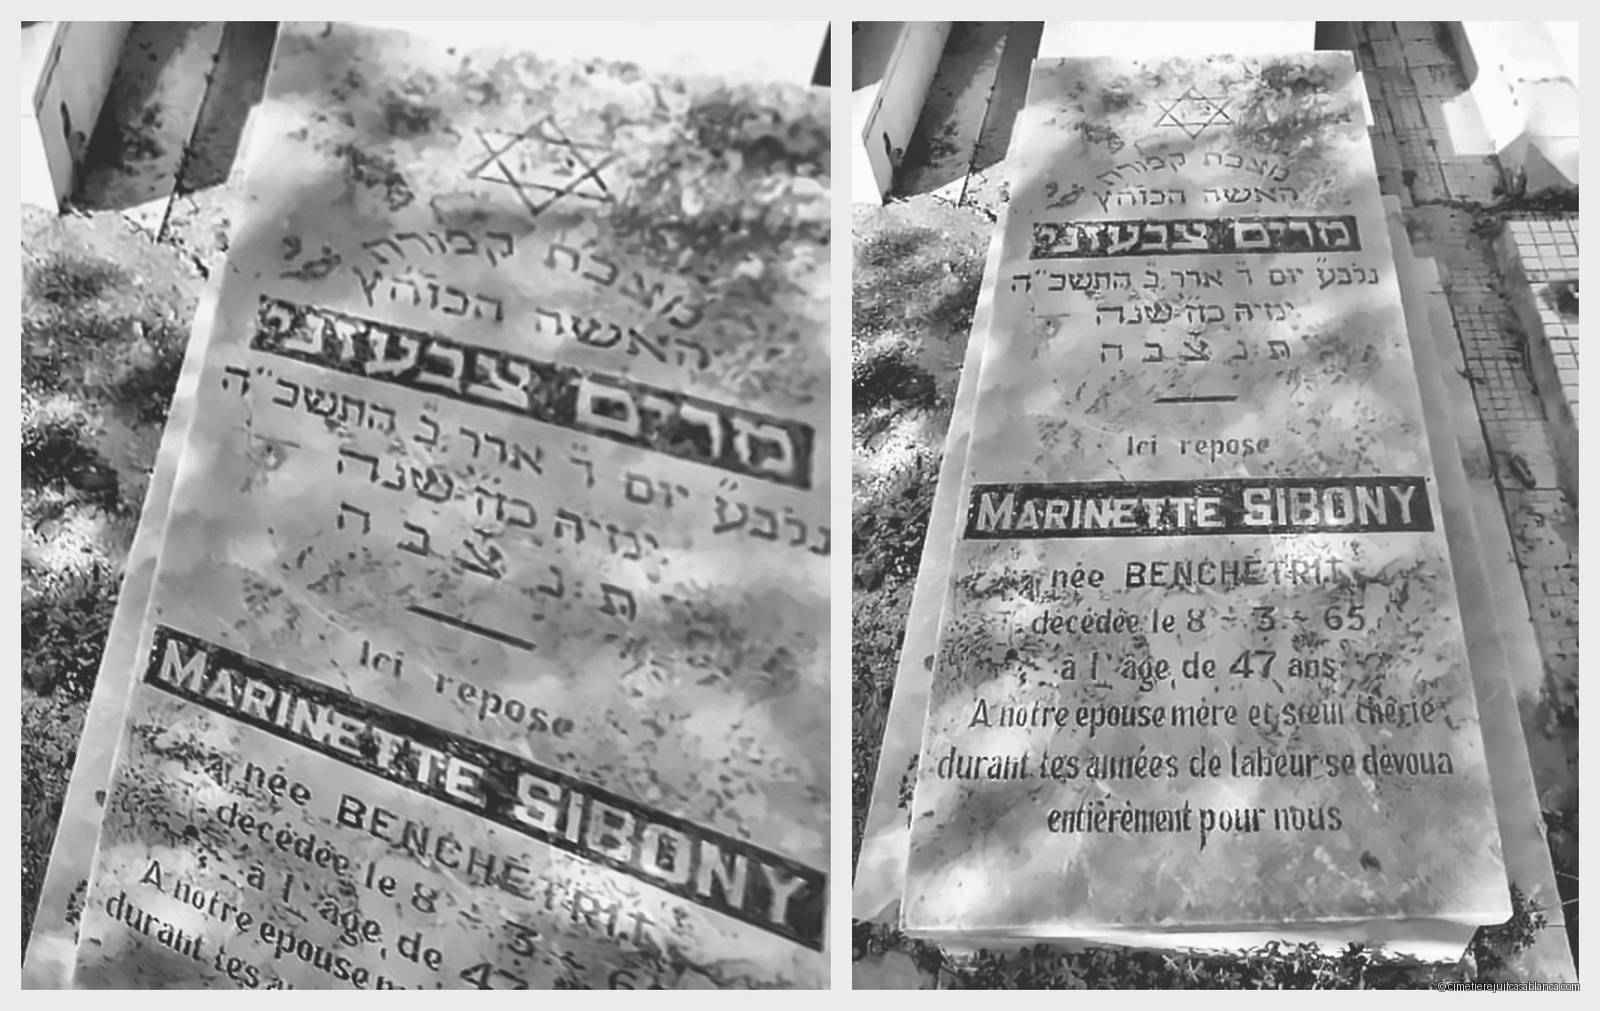 מצבת קבורת
האשה
מרים צבעוני
נלבע״ יום ד׳ אדר ב׳ התשכ״ה
שנה
ת נ צ ב ה
Ici repose
MARINETTE SIBONY
née BENCHETRIT
décédée le 8 - 3 - 6
à l'âge de 47
A notre épouse
durant tes
מצבת קבורת
האשה
מרים צבעוני
נלבע״ יום ד׳ אדר ב׳ התשכ״ה
שנה
ת נ צ ב ה
Ici repose
MARINETTE SIBONY
née BENCHETRIT
décédée le 8 - 3 - 65
à l'âge de 47 ans
A notre épouse mère et sœur chérie
durant tes années de labeur se dévoua
entièrement pour nous
©cimetierejuifcasablanca.com